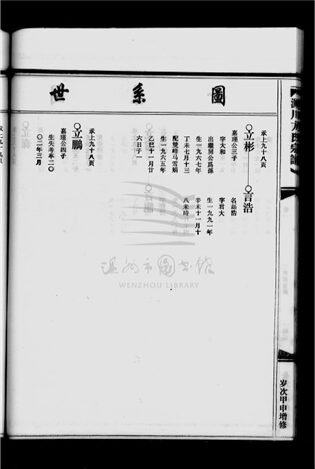 世系圖
承上九十八頁
立彬
言浩
嘉瑾公三子
字大和
出繼嗣公爲孫
生一九六七年
丁未七月十三
配雙峰马雪娟
生一九六五年
乙巳十一月廿
六日子一
名品浩
字君大
生一九九一年
辛未十一月十
八未時
承上九十八頁
立鵬
嘉瑾公四子
生失考卒二〇
〇二年三月
岁次甲申增修
温州市图书馆
WENZHOU LIBRARY